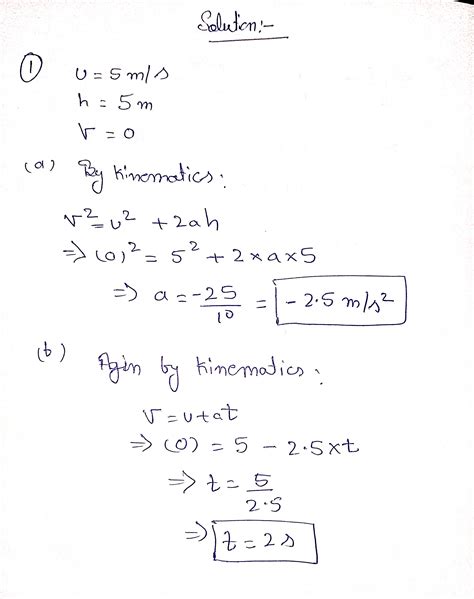 Solution:-
① u = 5 m/s
h = 5 m
v = 0
(a) By kinematics:
v² = u² + 2ah
⇒ (0)² = 5² + 2×a×5
⇒ a = -25/10 = -2.5 m/s²
(b) Agin by kinematics:
v = u+at
⇒ (0) = 5 - 2.5×t
⇒ t = 5/2.5
⇒ t = 2s